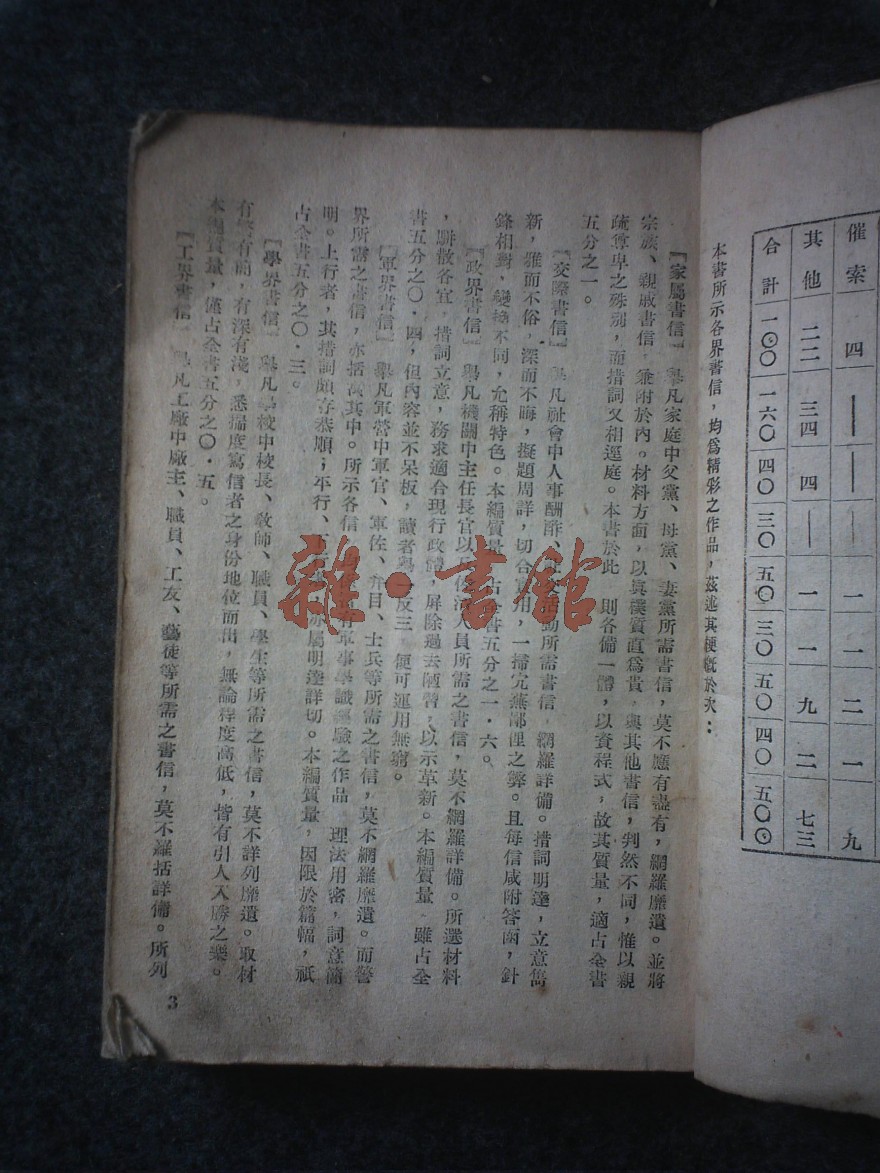 催索 四 — — — 一 二 一 九
其他 二二 三四 四 — 一 一 九 二 七三
合計 一〇〇 一六〇 四〇 三〇 五〇 三〇 五〇 四〇 五〇〇
本書所示各界書信，均爲精彩之作品，茲述其梗槪於次：
【家屬書信】 舉凡家庭中父黨、母黨、妻黨所需書信，莫不應有盡有，網羅靡遺。並將
宗族、親戚書信，兼附於內。材料方面，以眞樸質直爲貴，與其他書信，判然不同，惟以親
疏尊卑之殊別，而措詞又相逕庭。本書於此 則各備一體，以資程式，故其質量，適占全書
五分之一。
【交際書信】 舉凡社會中人事酬酢 活動所需書信，網羅詳備。措詞明達，立意雋
新，雅而不俗，深而不晦，擬題周詳，切合實用，一掃冗蕪鄙俚之弊。且每信咸附答函，針
鋒相對，變換不同，允稱特色。本編質量，占全書五分之一・六。
【政界書信】 舉凡機關中主任長官以及 人員所需之書信，莫不網羅詳備。所選材料
，駢散各宜，措詞立意，務求適合現行政體，屏除過去陋習，以示革新。本編質量，雖占全
書五分之〇・四，但內容並不呆板，讀者舉一反三，便可運用無窮。
【軍界書信】 舉凡軍營中軍官、軍佐、弁目、士兵等所需之書信，莫不網羅靡遺。而警
界所需之書信，亦括 其中。所示各信， 有軍事學識經驗之作品，理法用密，詞意簡
明。上行者，其措詞頗存恭順；平行、 亦屬明達詳切。本編質量，因限於篇幅，祇
占全書五分之〇・三。
【學界書信】 舉凡學校中校長、敎師、職員、學生等所需之書信，莫不詳列靡遺。取材
有繁有簡，有深有淺，悉揣度寫信者之身份地位而出，無論程度高低，皆有引人入勝之樂。
本編質量，僅占全書五分之〇・五。
【工界書信】 舉凡工廠中廠主、職員、工友、藝徒等所需之書信，莫不羅括詳備。所列
3
雜・書館